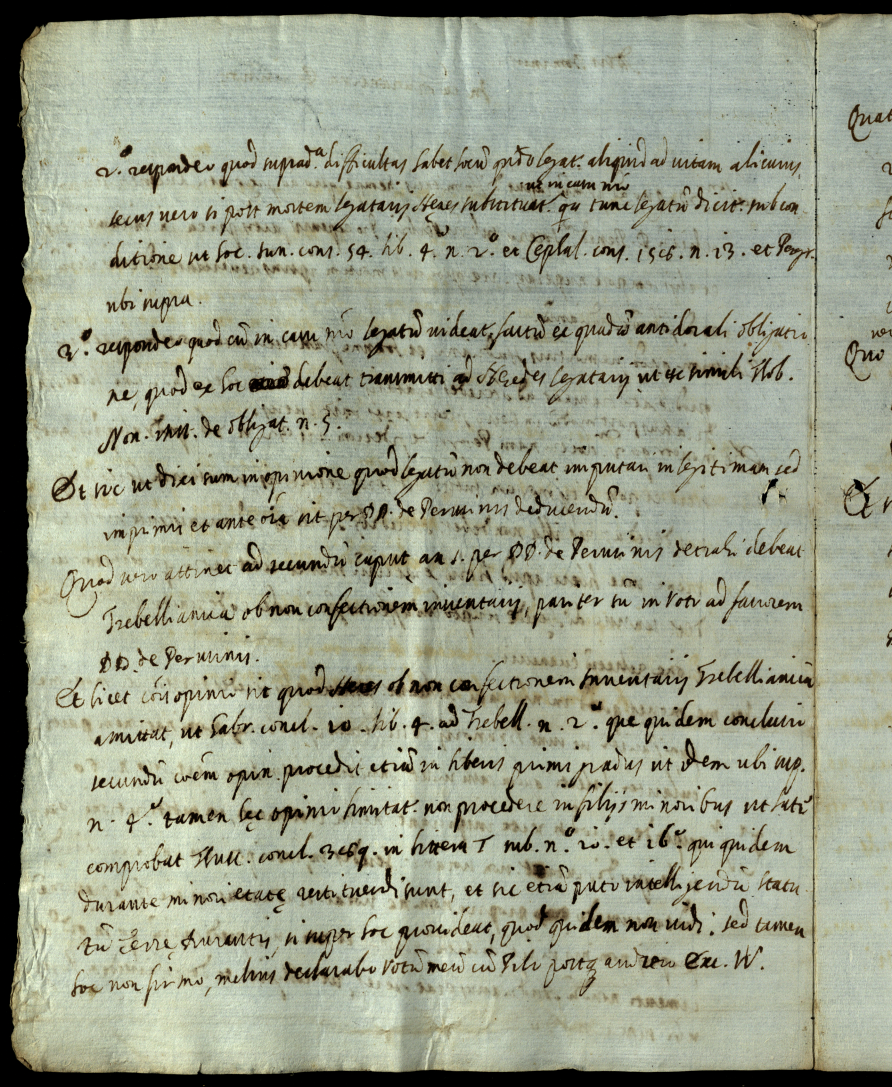 2.º respondeo quod suprad.ª difficultas habet locũ qñdo legat. aliquid ad vitam alicuius,
ut in casu nrõ
secus vero si post mortem legatarij Heres substituat. qa tunc legatũ dicit. sub con
ditione ut Soc. Iun. cons. 54. lib. 4.º n. 2.º et Cephal. cons. 1516. n. 13. et Peregr.
ubi supra.
3.º respondeo quod cũ in casu nrõ legatũ videat. factũ ex quadã antidorali obligatio
ne, quod ex hoc debeat transmitti ad Heredes legatarij ut in simili Rob.
Non. inst. de obligat. n. 5.
Et sic ut dixi sum in opinione quod legatũ non debeat imputari in legitimam sed
imprimis et ante oĩa sit per DD. de Perusinis deducendũ.
Quod vero attinet ad secundũ caput an s. per DD. de Perusinis detrahi debeat
Trebellianica ob non confectionem inventarij, pariter sũ in voto ad favorem
DD. de Perusinis.
Et licet cõis opinio sit quod Heres ob non confectionem Inventarij Trebellianicã
amittat, ut Gabr. concl. 10. lib. 4. ad Trebell. n. 2.º que quidem conclusio
secundũ cõem opin. procedit etiã in liberis primi gradus ut idem ubi sup.
n. 4.º tamen hęc opinio limitat. non procedere in filijs minoribus ut latẽ
comprobat Thusc. concl. 369. in littera T sub. n.º 10. et 16.º qui quidem
durante minori etatę restituendi sunt, et sic etiã puto intelligendũ Statu
tũ Terre si super hoc provideat, quod quidem non vidi; sed tamen
hoc non firmo, melius declarabo votũ meũ cũ
Quat
Quo
Et